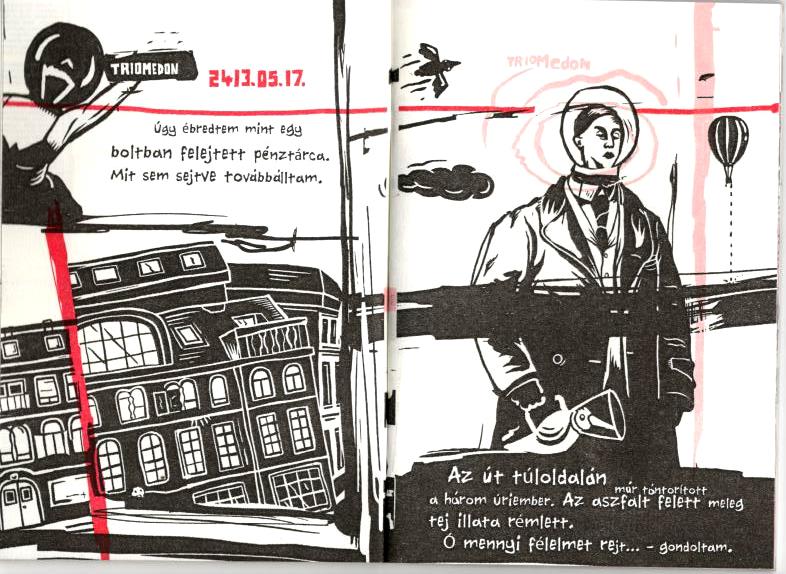 TRIOMEDON
2413.05.17.
Úgy ébredtem mint egy
boltban felejtett pénztárca.
Mit sem sejtve továbbálltam.
TRIOMEDON
Az út túloldalán
már tántorított
a három úriember. Az aszfalt felett meleg
tej illata rémlett.
Ó mennyi félelmet rejt... - gondoltam.